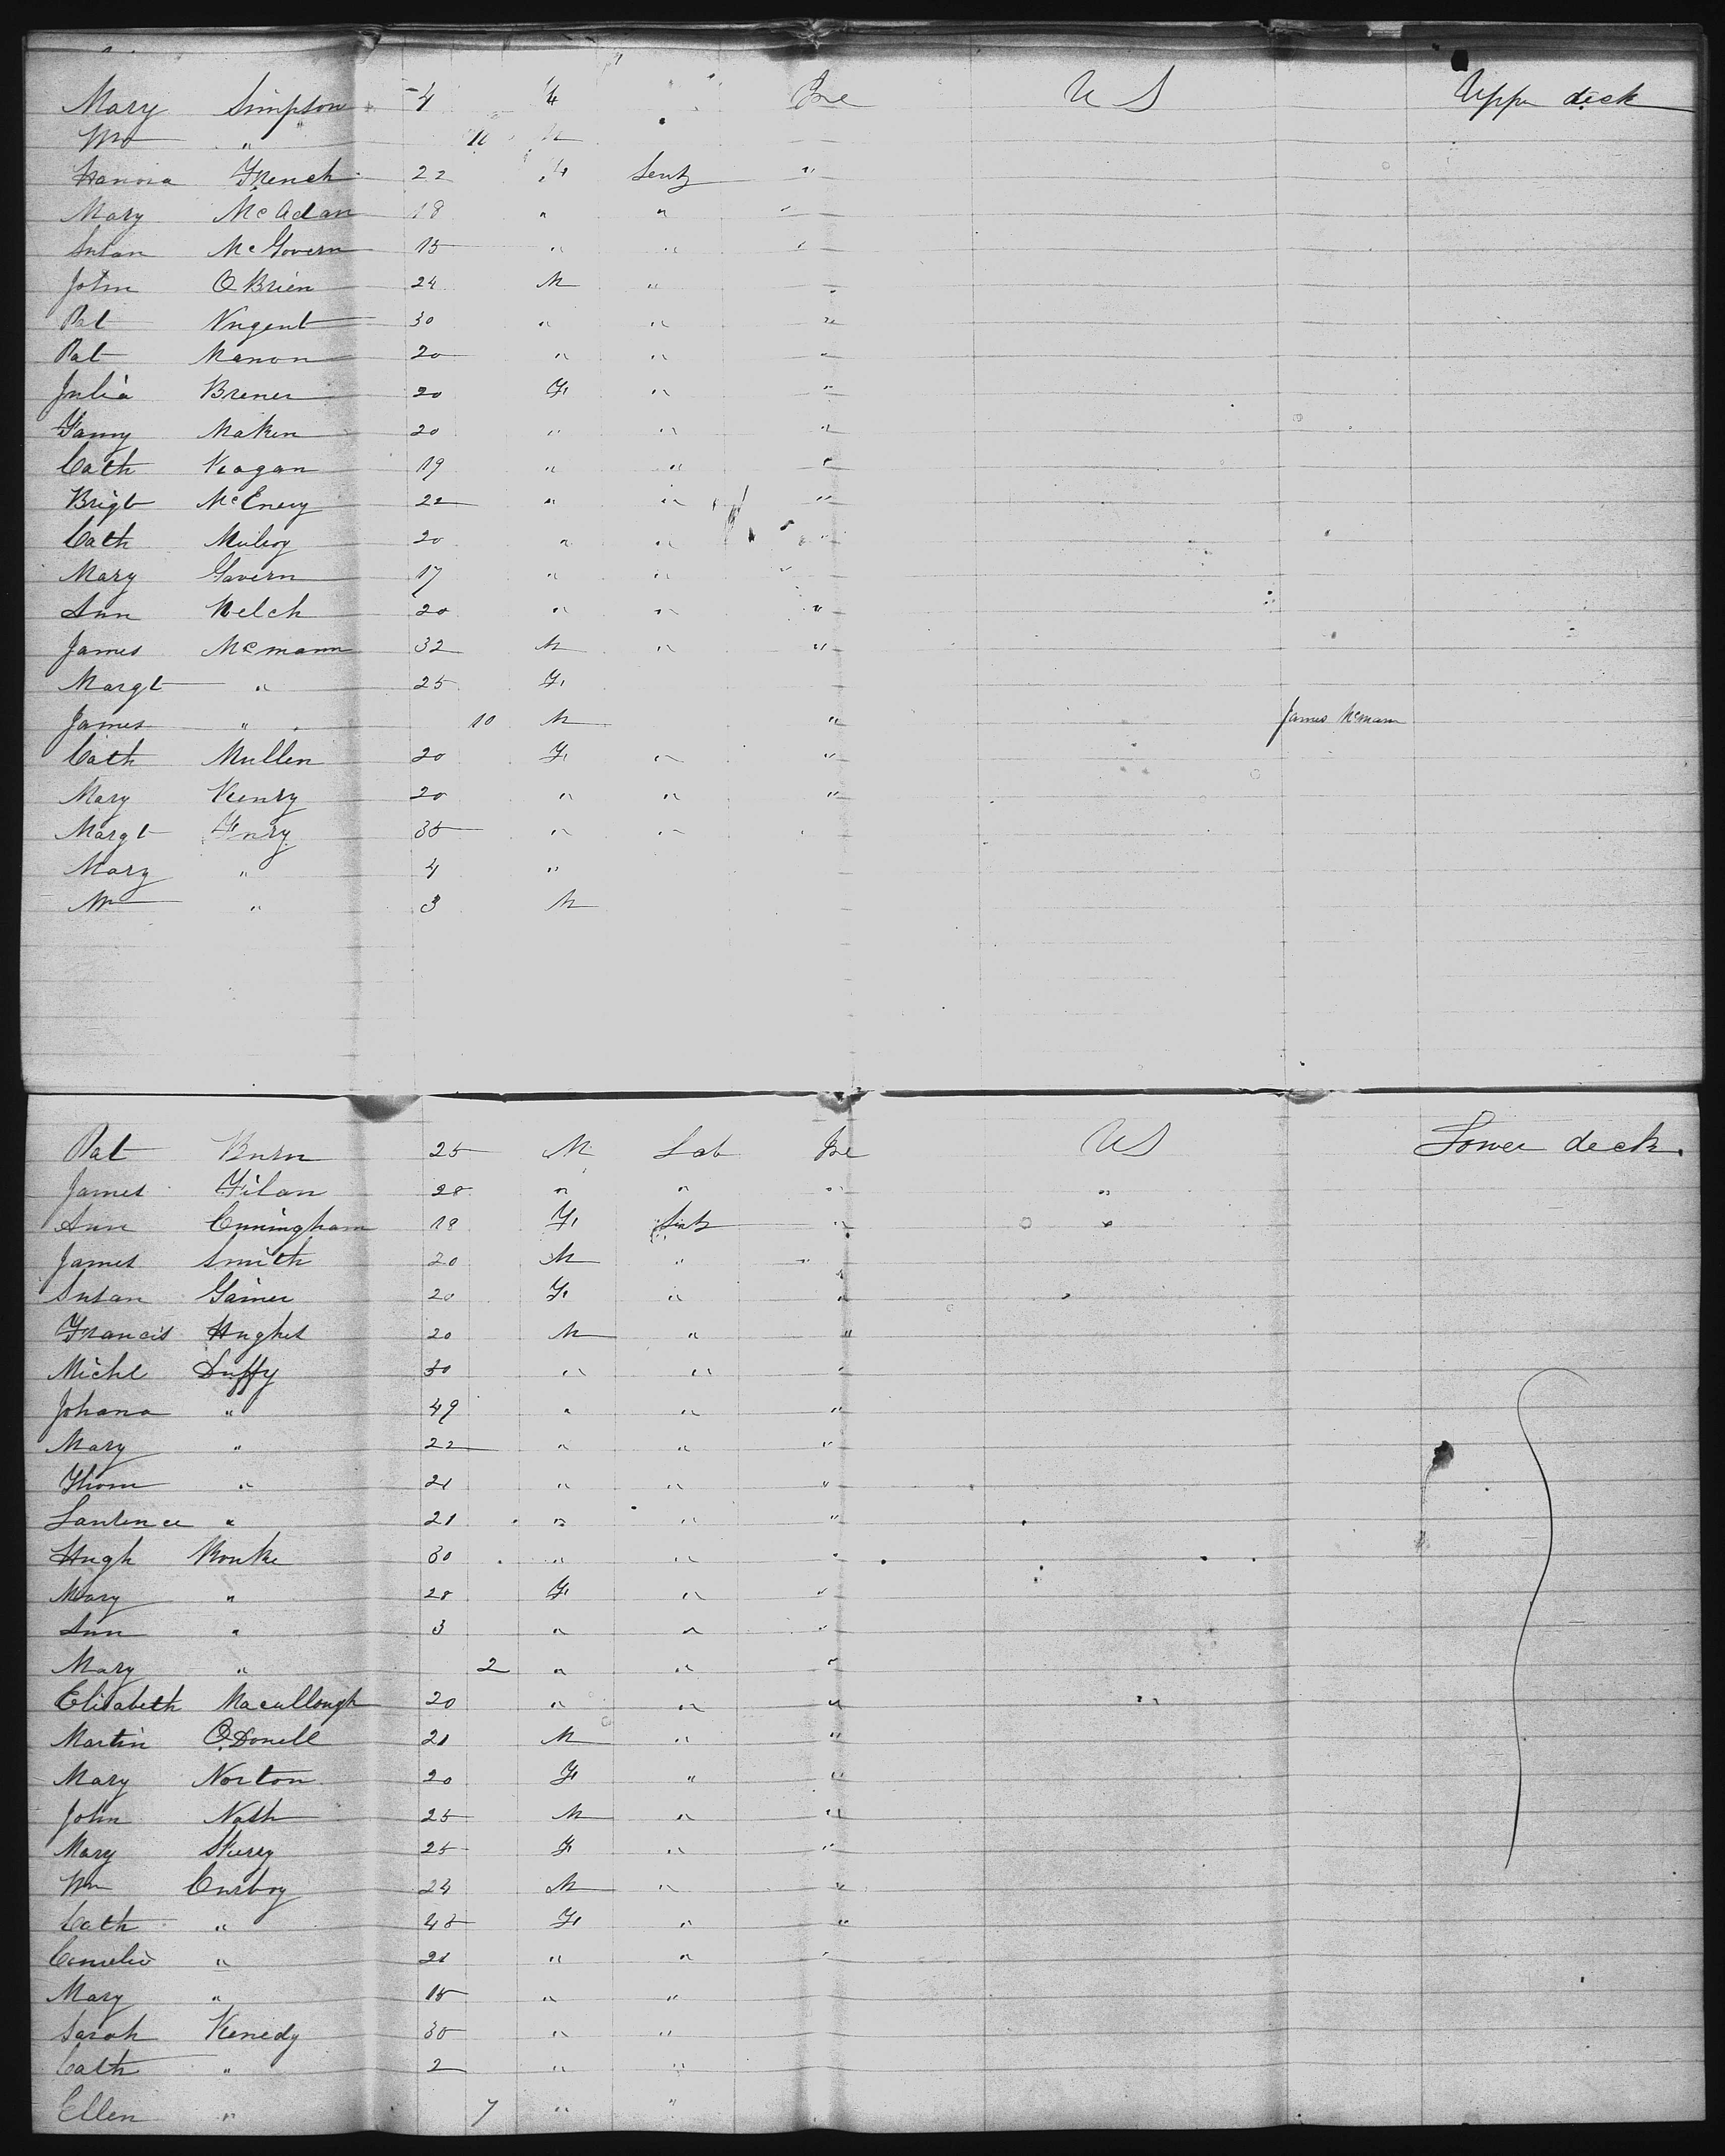 Mary Simpson 4 F Ire U S Upper deck
Wm " 11 M
Hanora French 22 F Servt "
Mary McAdam 18 " " "
Susan McGovern 15 " " "
John O Brien 24 M " "
Pat Nugent 30 " " "
Pat Manon 20 " " "
Julia Brener 20 F " "
Fanny Maken 20 " " "
Cath Keagan 19 " " "
Brigt McEnery 22 " " "
Cath Mulroy 20 " " "
Mary Gavern 17 " " "
Ann Welch 20 " " "
James Mcmann 32 M " "
Margt " 25 F "
James " 10 M " James Mcmann
Cath Mullen 20 F " "
Mary Kenry 20 " " "
Margt Fury 35 " "
Mary " 4 "
Wm " 3 M
Pat Burn 25 M Lab Ire U S Lower deck.
James Filan 28 " " " "
Ann Cunningham 18 F Servt " "
James Smith 20 M " "
Susan Gainer 20 F " " "
Francis Hughes 20 M " "
Michl Duffy 50 " " "
Johana " 49 " " "
Mary " 22 " " "
Thom " 21 " " "
Laurence " 21 " " "
Hugh Rourke 30 " " "
Mary " 28 F " "
Ann " 3 " " "
Mary " 2 " " "
Elisabeth Macullough 20 " " " "
Martin O.Donell 21 M " "
Mary Norton 20 F " "
John Nash 25 M " "
Mary Skerry 25 F " "
Wm Conboy 24 M " "
Cath " 45 F " "
Cornelio " 21 " " "
Mary " 15 " "
Sarah Kenedy 30 " "
Cath " 2 " "
Ellen " 7 " "